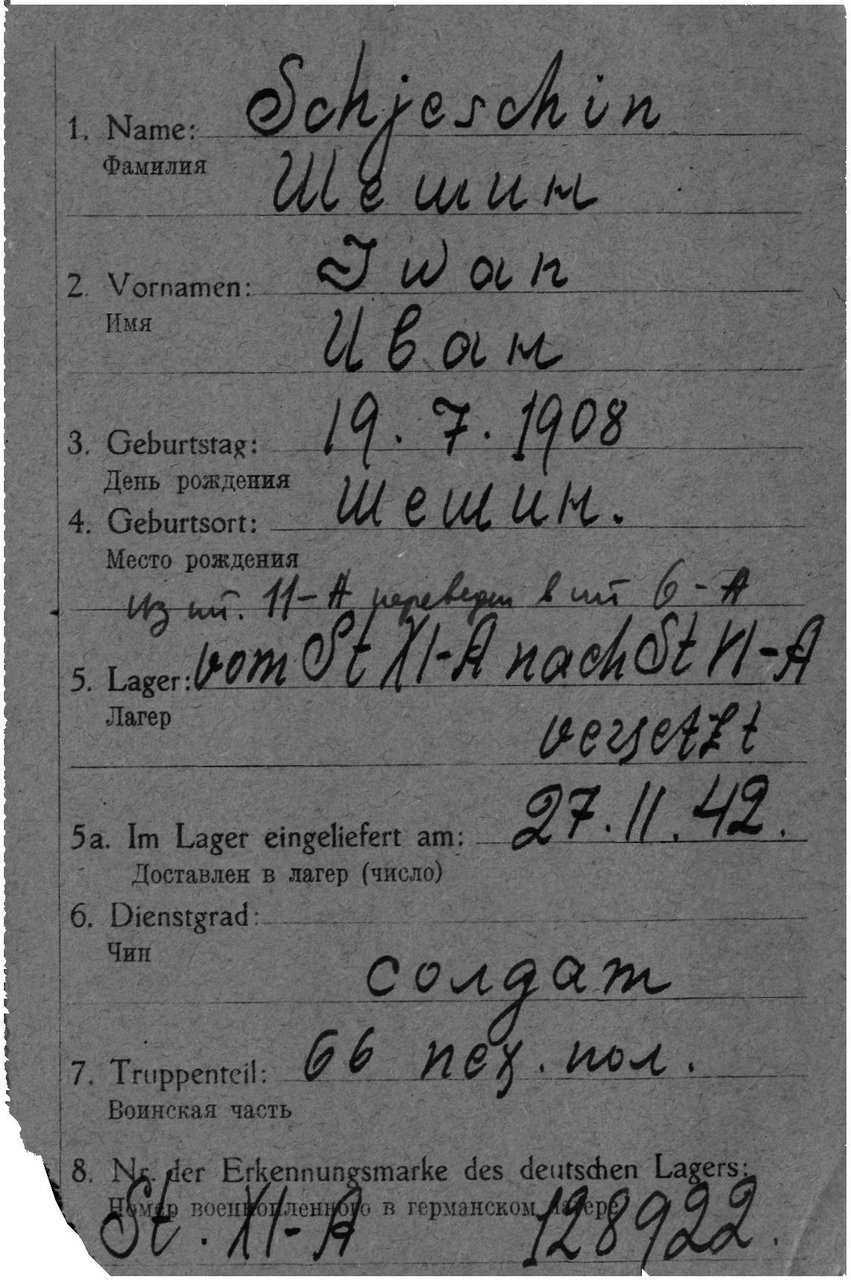 1. Name: Schjeschin
Фамилия
Шешин
2. Vornamen: Iwan
Имя
Иван
3. Geburtstag: 19. 7. 1908
День рождения
4. Geburtsort: Шешин.
Место рождения
из шт. 11-А переведен в шт 6-А
5. Lager: vom St XI-A nach St VI-A
Лагер
versetzt
5a. Im Lager eingeliefert am: 27.11.42.
Доставлен в лагер (число)
6. Dienstgrad:
Чин
солдат
7. Truppenteil: 66 пех. пол.
Воинская часть
8. Nr. der Erkennungsmarke des deutschen Lagers:
Номер военнопленного в германском лагере
St. XI-A 128922.